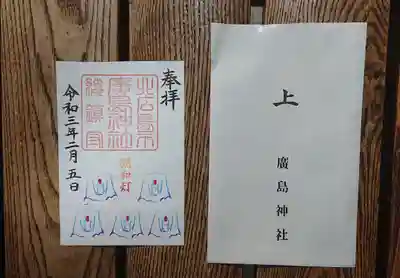 奉拝
北広島市
廣島神社
令和三年二月五日
上
廣島神社